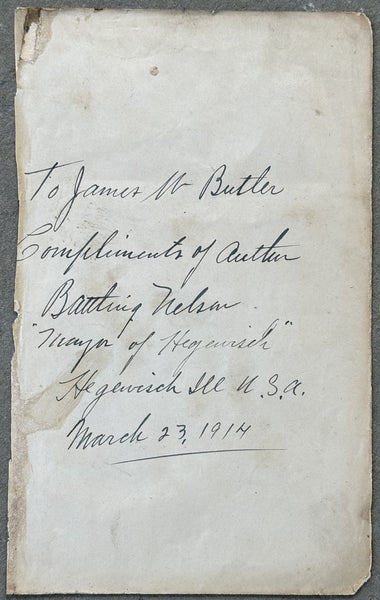 To James W Butler
Compliments of Author
Battling Nelson.
"Mayor of Hegewisch"
Hegewisch Ill U.S.A.
March 23, 1914